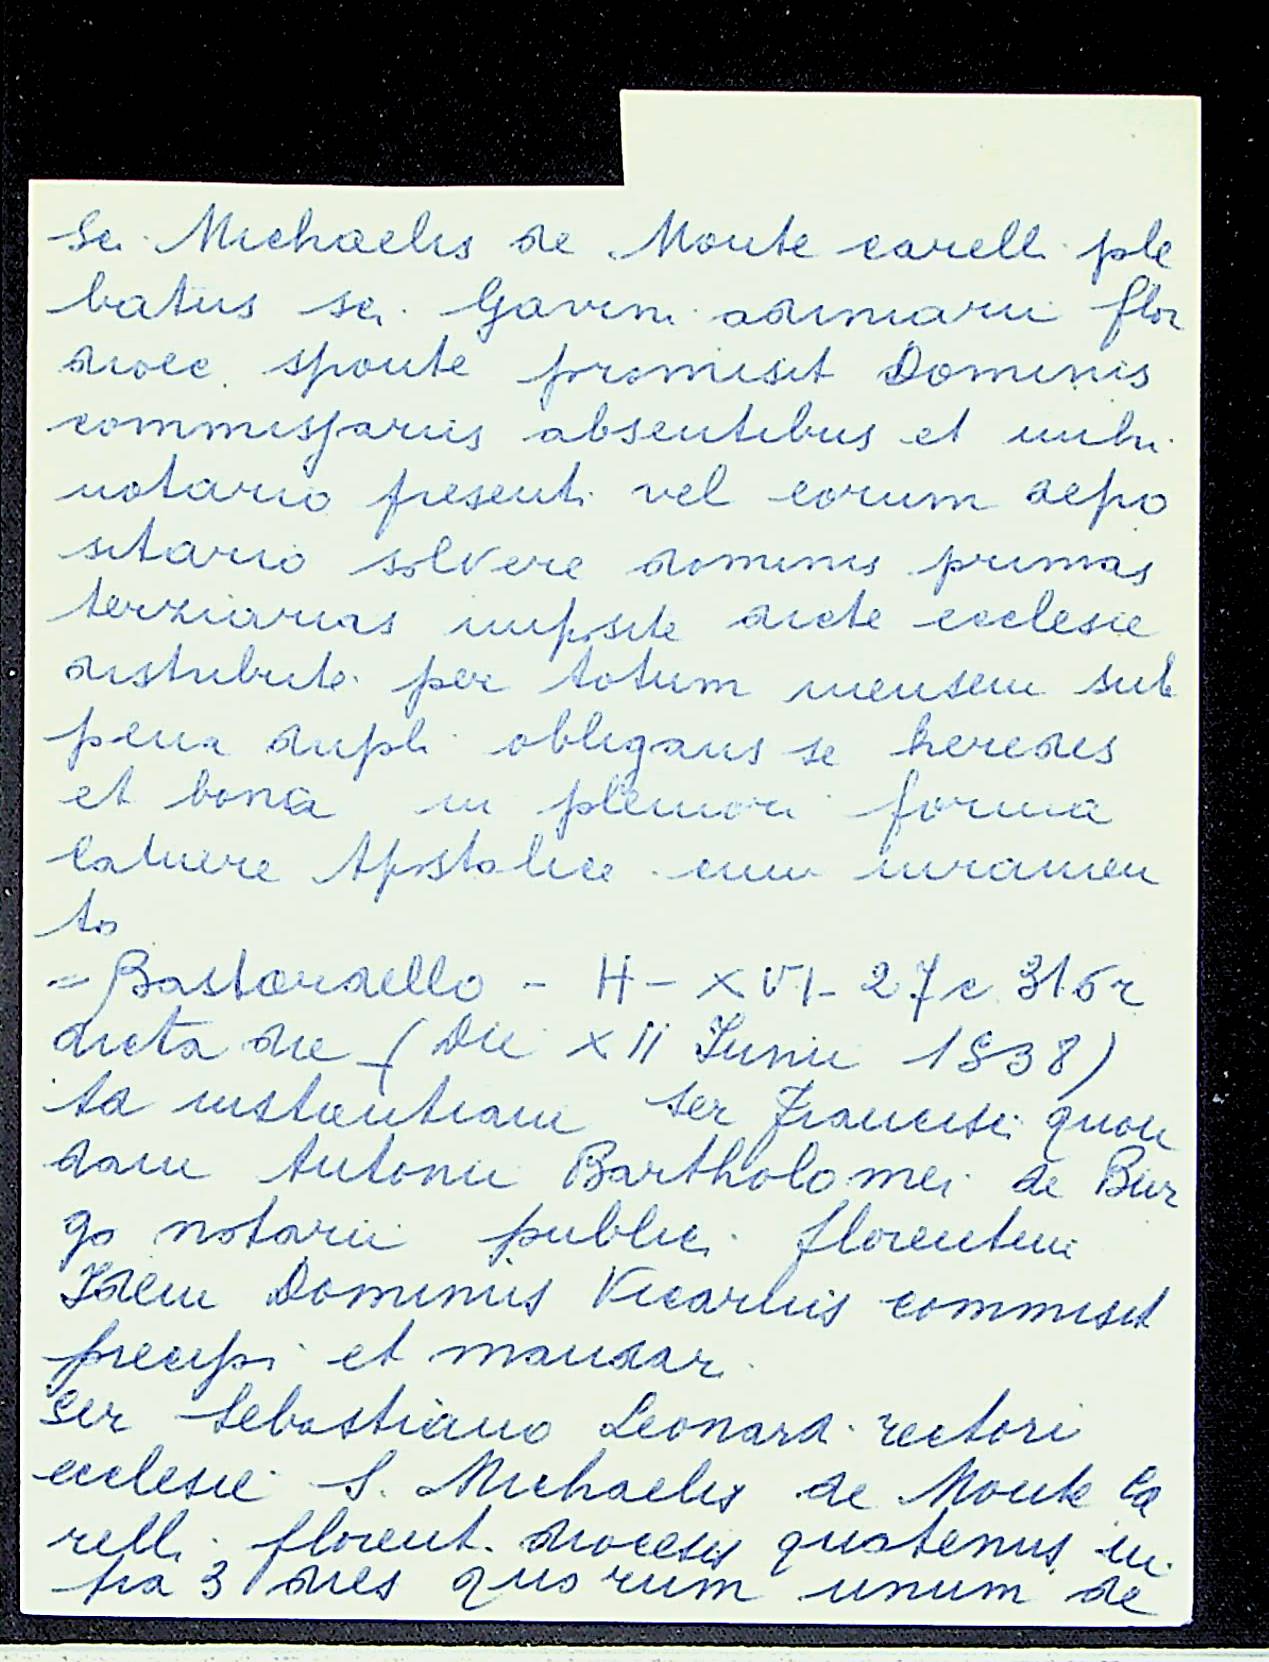 Sci. Michaelis de Monte carelli ple
batus sci. Gavini adimarii flor
dioec. sponte promisit Dominis
commissariis absentibus et mihi
notario presenti vel eorum depo
sitario solvere dominis primas
terziarias imposite dicte ecclesie
distribute per totum mensem sub
pena dupli obligans se heredes
et bona in pleniori forma
Camere Apostolice cum iuramen
to
= Bastardello - H - XVI - 27 c 316r
dicta die - (Die XII Junii 1538)
Ad instantiam ser Francisci quon
dam Antonii Bartholomei de Bur
go notarii publici florentini
Idem Dominus Vicarius commisit
precipi et mandar.
Ser Sebastiano Leonardi rectori
ecclesie S. Michaelis de Monte Ca
relli florent. diocesis quatenus in
fra 3 dies quorum unum de